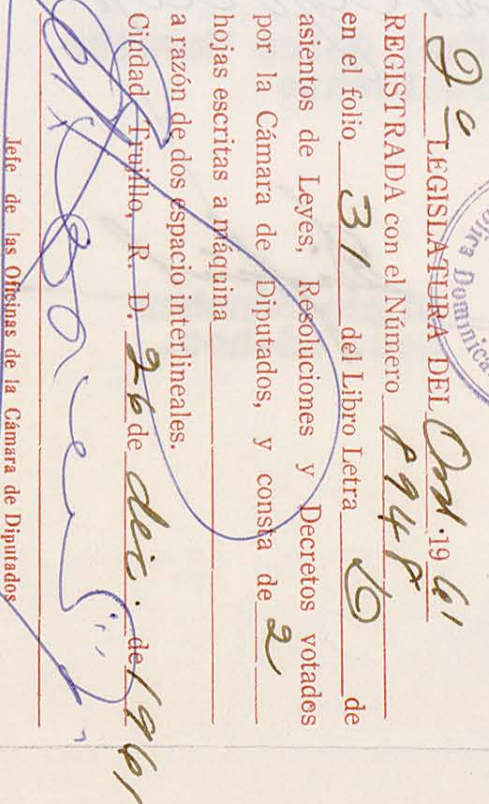 2a LEGISLATURA DEL Ord. 1961
REGISTRADA con el Número 8948
en el folio 31 del Libro Letra de
asientos de Leyes, Resoluciones y Decretos votados
por la Cámara de Diputados, y consta de 2
hojas escritas a máquina
a razón de dos espacio interlineales.
Ciudad Trujillo, R. D. 26 de dic. de 1961
Jefe de las Oficinas de la Cámara de Diputados
Dominica